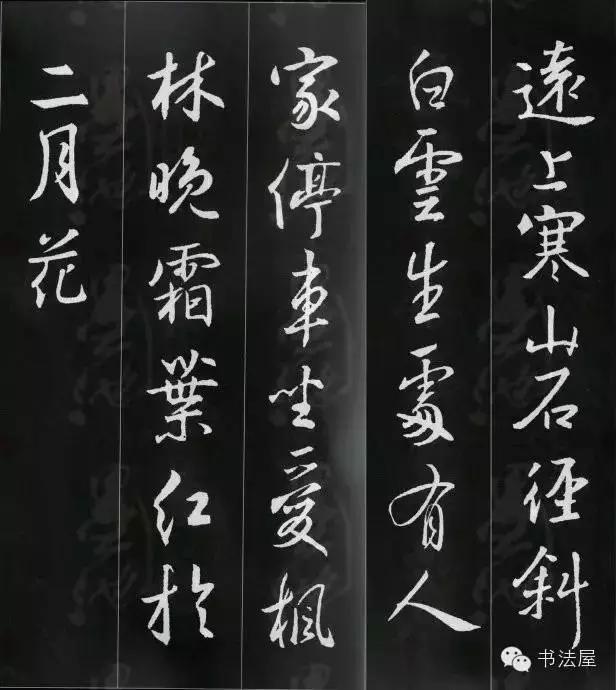 遠上寒山石徑斜
白雲生處有人
家停車坐愛楓
林晚霜葉紅於
二月花
书法屋